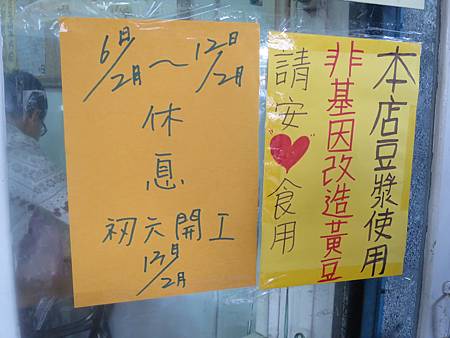 6日/2月～12日/2月
休息
初六開工
13日/2月
本店豆漿使用
非基因改造黃豆
請安"❤"食用